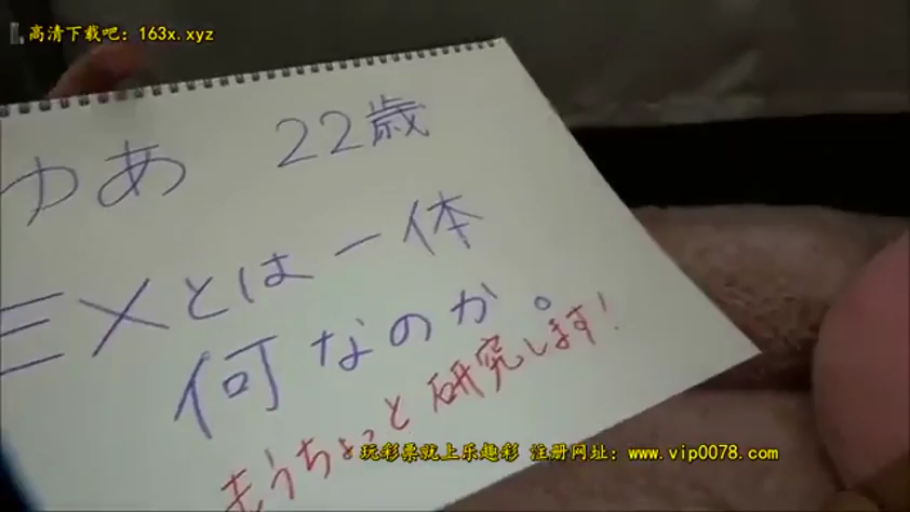 高清下载吧：163x.xyz
ゆあ 22歳
EXとは一体
何なのか。
もうちょっと研究します！
玩彩票就上乐趣彩 注册网址：www.vip0078.com